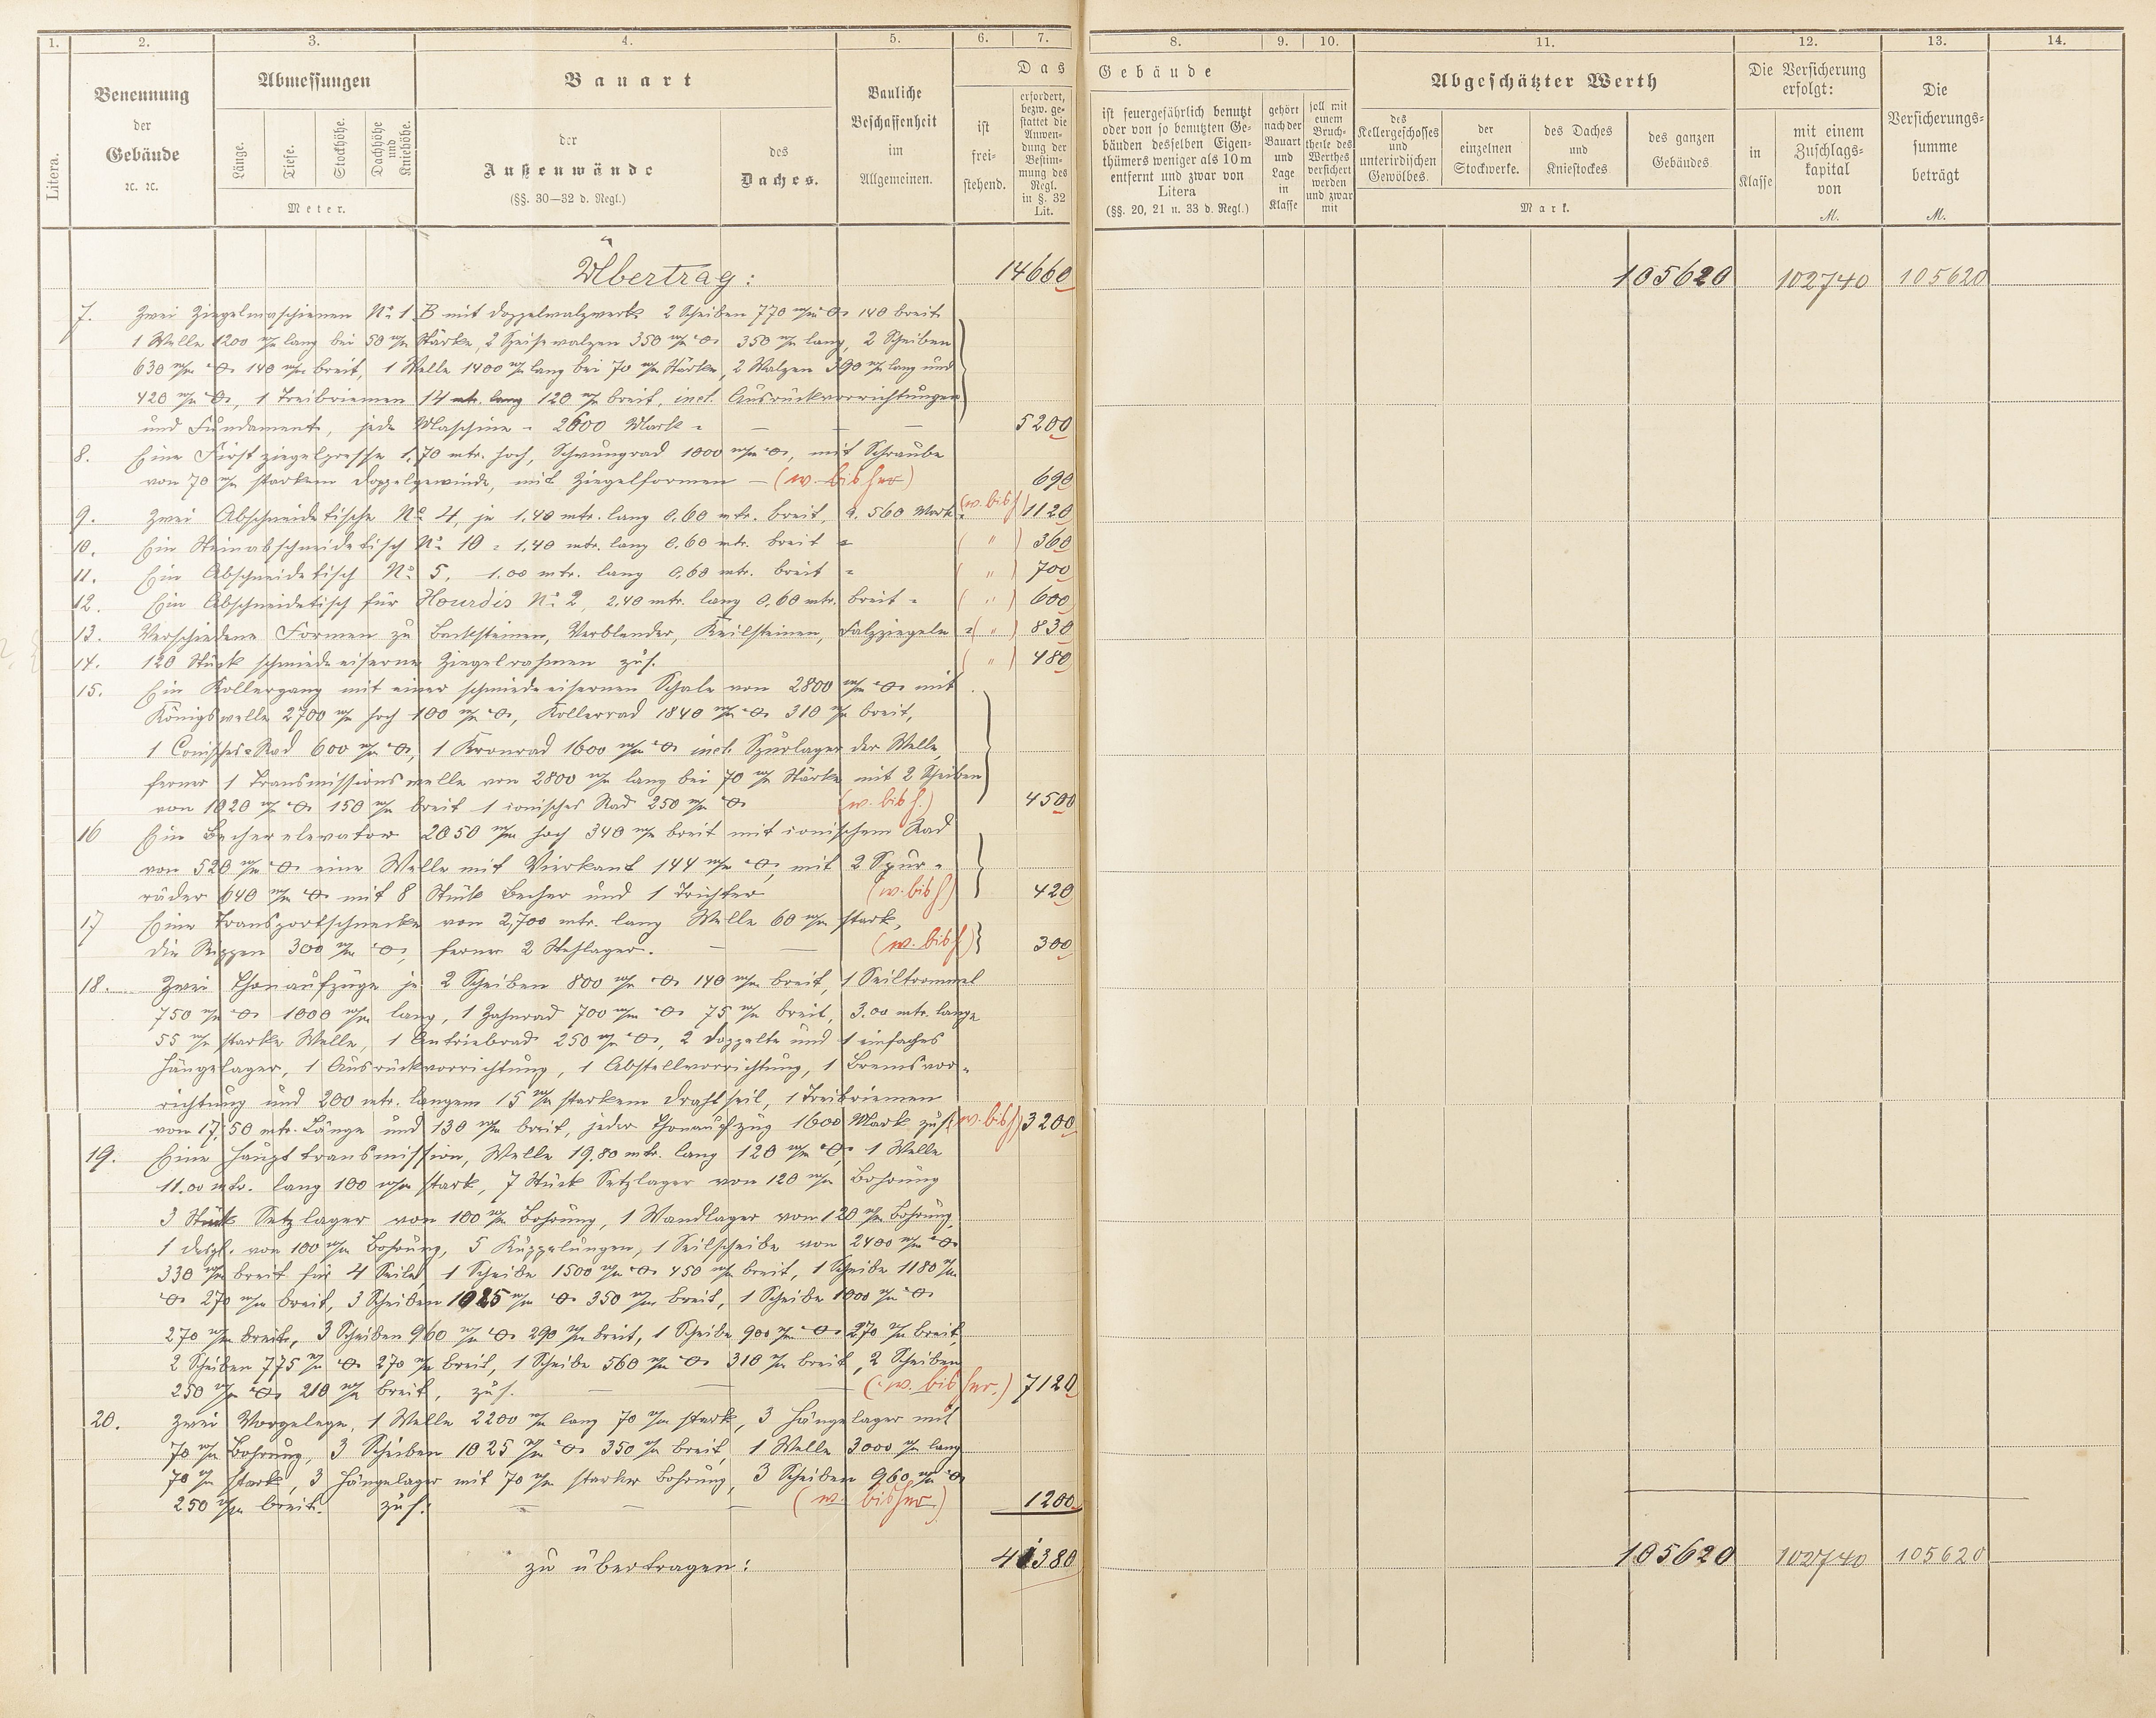 1. 2. 3. 4. 5. 6. 7. 8. 9. 10. 11. 12. 13. 14.
Litera.
Benennung
der
Gebäude
ꝛc. ꝛc.
Abmessungen
Länge.
Tiefe.
Stockhöhe.
Dachhöhe und Kniehöhe.
Meter.
Bauart
der
Außenwände
(§§. 30—32 d. Regl.)
des
Daches.
Bauliche
Beschaffenheit
im
Allgemeinen.
Das Gebäude
ist
frei-
stehend.
erfordert,
bezw. ge-
stattet die
Anwen-
dung der
Bestim-
mung des
Regl.
in §. 32
Lit.
ist feuergefährlich benutzt
oder von so benutzten Ge-
bäuden desselben Eigen-
thümers weniger als 10 m
entfernt und zwar von
Litera
(§§. 20, 21 u. 33 d. Regl.)
gehört
nach der
Bauart
und
Lage
in
Klasse
soll mit
einem
Bruch-
theile des
Werthes
versichert
werden
und zwar
mit
Abgeschätzter Werth
des
Kellergeschosses
und
unterirdischen
Gewölbes.
der
einzelnen
Stockwerke.
des Daches
und
Kniestockes.
des ganzen
Gebäudes.
Mark.
Die Versicherung
erfolgt:
in
Klasse
mit einem
Zuschlags-
kapital
von
M.
Die
Versicherungs-
summe
beträgt
M.
Übertrag: 14660 105620 102740 105620
7. Zwei Ziegelmaschienen No. 1 B mit Doppelwalzwerk 2 Scheiben 770 m/m ⌀ 140 breit
1 Welle 1200 m/m lang bei 50 m/m Stärke, 2 Speisewalzen 350 m/m ⌀ 350 m/m lang, 2 Scheiben
630 m/m ⌀ 140 m/m breit, 1 Welle 1400 m/m lang bei 70 m/m Stärke, 2 Walzen 390 m/m lang und
420 m/m ⌀, 1 Treibriemen 14 mtr. lang 120 m/m breit, incl. Ausrückvorrichtungen
und Fundament, jede Maschine = 2600 Mark = — — — 5200
8. Eine Firstziegelpresse 1.70 mtr. hoch, Schwungrad 1000 m/m ⌀, mit Schraube
von 70 m/m starkem Doppelgewinde, mit Ziegelformen — (w. bisher) 690
9. Zwei Abschneidetische No. 4, je 1.40 mtr. lang 0.60 mtr. breit, a. 560 Mark (w. bish) 1120
10. Ein Steinabschneidetisch No. 10 = 1.40 mtr. lang 0.60 mtr. breit = ( " ) 360
11. Ein Abschneidetisch No. 5, 1.00 mtr. lang 0.60 mtr. breit = ( " ) 700
12. Ein Abschneidetisch für Hourdis No. 2, 2.40 mtr. lang 0.60 mtr. breit = ( " ) 600
13. Verschiedene Formen zu Backsteinen, Verblender, Keilsteinen, Falzziegeln = ( " ) 830
14. 120 Stück schmiedeeiserne Ziegelrahmen zus. ( " ) 480
15. Ein Kollergang mit einer schmiedeeisernen Schale von 2800 m/m ⌀ mit
Königswelle 2700 m/m hoch 100 m/m ⌀, Kollerrad 1840 m/m ⌀ 310 m/m breit,
1 Conisches-Rad 600 m/m ⌀, 1 Kronrad 1600 m/m ⌀ incl. Spurlager der Welle,
ferner 1 Transmissionswelle von 2800 m/m lang bei 70 m/m Stärke mit 2 Scheiben
von 1020 m/m ⌀ 150 m/m breit 1 conisches Rad 250 m/m ⌀ (w. bish.) 4500
16 Ein Becherelevator 2050 m/m hoch 340 m/m breit mit conischem Rad
von 520 m/m ⌀ eine Welle mit Vierkant 144 m/m ⌀, mit 2 Spur-
räder 640 m/m ⌀ mit 8 Stück Becher und 1 Trichter (w. bish) 420
17 Eine Transportschnecke von 2,700 mtr. lang Welle 60 m/m stark,
die Rippen 300 m/m ⌀, ferner 2 Stehlager. — — (w. bish) 300
18. Zwei Thonaufzüge je 2 Scheiben 800 m/m ⌀ 140 m/m breit, 1 Seiltrommel
750 m/m ⌀ 1000 m/m lang, 1 Zahnrad 700 m/m ⌀ 75 m/m breit, 3.00 mtr. lange
55 m/m starke Welle, 1 Antriebrad 250 m/m ⌀, 2 doppelte und 1 einfaches
Hängelager, 1 Ausrückvorrichtung, 1 Abstellvorrichtung, 1 Bremsvor-
richtung und 200 mtr. langem 15 m/m starkem Drahtseil, 1 Treibriemen
von 17,50 mtr. Länge und 130 m/m breit, jeder Thonaufzug 1600 Mark zus. (w. bish) 3200
19. Eine Haupttransmission, Welle 19.80 mtr. lang 120 m/m ⌀, 1 Welle
11.00 mtr. lang 100 m/m stark, 7 Stück Setzlager von 120 m/m Bohrung
3 Stück Setzlager von 100 m/m Bohrung, 1 Wandlager von 120 m/m Bohrung,
1 desgl. von 100 m/m Bohrung, 5 Kuppelungen, 1 Seilscheibe von 2400 m/m ⌀
330 m/m breit für 4 Seile, 1 Scheibe 1500 m/m ⌀ 450 m/m breit, 1 Scheibe 1180 m/m
⌀ 270 m/m breit, 3 Scheiben 1025 m/m ⌀ 350 m/m breit, 1 Scheibe 1000 m/m ⌀
270 m/m breit, 3 Scheiben 960 m/m ⌀ 290 m/m breit, 1 Scheibe 900 m/m ⌀ 270 m/m breit,
2 Scheiben 775 m/m ⌀ 270 m/m breit, 1 Scheibe 560 m/m ⌀ 310 m/m breit, 2 Scheiben
250 m/m ⌀ 210 m/m breit, zus. — — — (w. bisher.) 7120
20. Zwei Vorgelege, 1 Welle 2200 m/m lang 70 m/m stark, 3 Hängelager mit
70 m/m Bohrung, 3 Scheiben 1025 m/m ⌀ 350 m/m breit, 1 Welle 3000 m/m lang
70 m/m stark, 3 Hängelager mit 70 m/m starker Bohrung, 3 Scheiben 960 m/m ⌀
250 m/m breit. zus: — — — (w. bisher) 1200
zu übertragen: 41380 105620 102740 105620